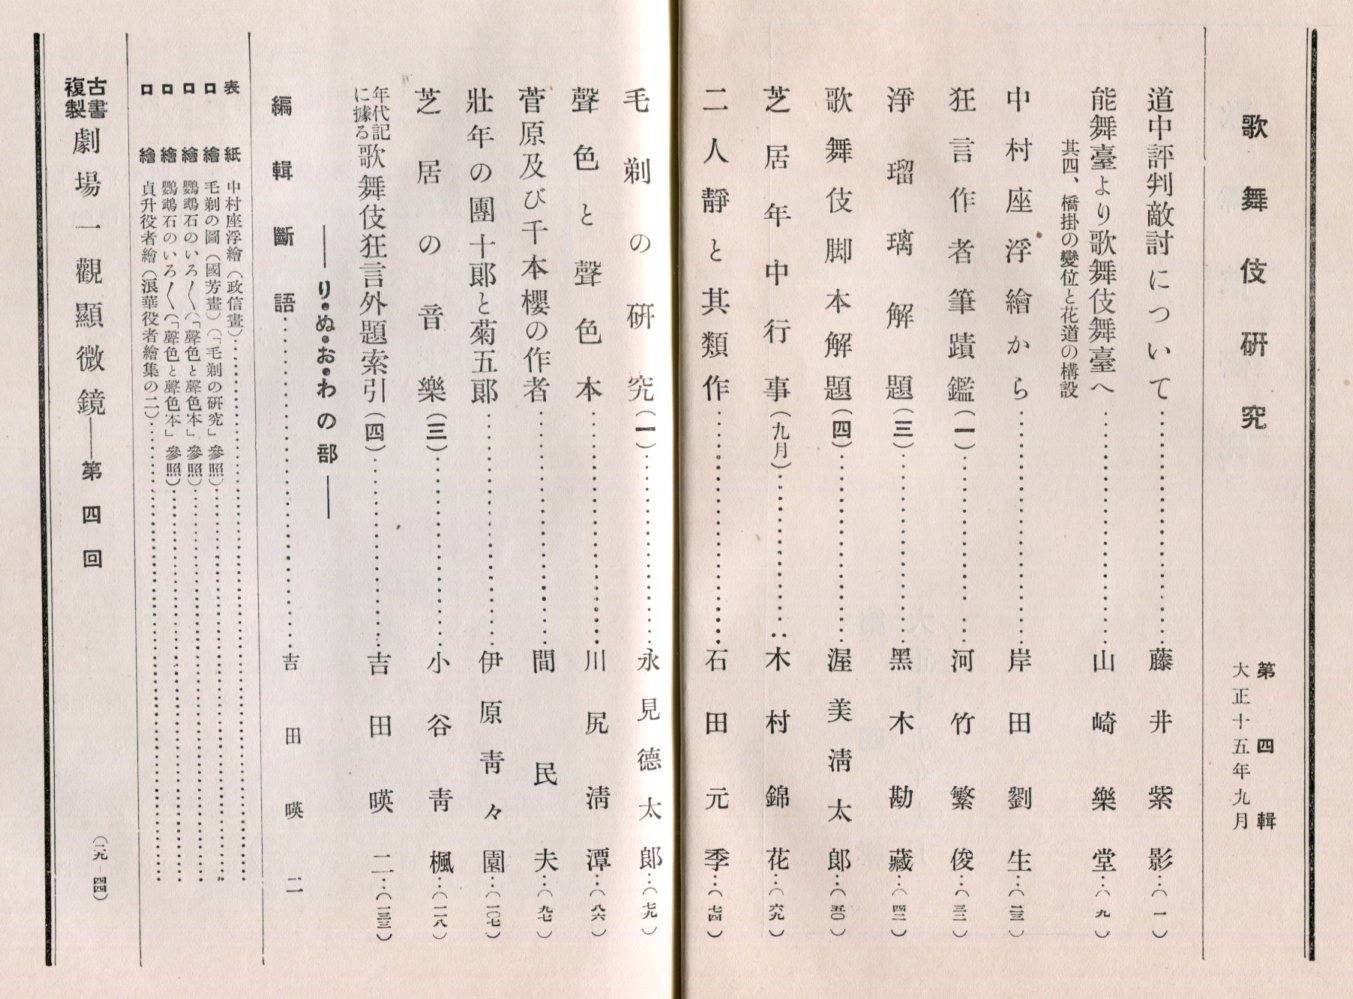 歌舞伎研究
第四輯
大正十五年九月
道中評判敵討について……藤井紫影…（一）
能舞臺より歌舞伎舞臺へ……山崎樂堂…（九）
其四、橋掛の變位と花道の構設
中村座浮繪から……岸田劉生…（二三）
狂言作者筆蹟鑑（一）……河竹繁俊…（三二）
淨瑠璃解題（三）……黑木勘藏…（四二）
歌舞伎脚本解題（四）……渥美淸太郎…（五〇）
芝居年中行事（九月）……木村錦花…（六九）
二人靜と其類作……石田元季…（七四）
毛剃の研究（一）……永見德太郎…（七九）
聲色と聲色本……川尻淸潭…（八六）
菅原及び千本櫻の作者……間民夫…（九七）
壯年の團十郞と菊五郞……伊原靑々園…（一〇七）
芝居の音樂（三）……小谷靑楓…（一一八）
年代記に據る歌舞伎狂言外題索引（四）……吉田暎二…（一三三）
――り・ぬ・お・わの部――
編輯斷語……吉田暎二
表紙 中村座浮繪（政信畫）……
口繪 毛剃の圖（國芳畫）（「毛剃の研究」參照）……
口繪 鸚鵡石のいろ〱（「聲色と聲色本」參照）……
口繪 鸚鵡石のいろ〱（「聲色と聲色本」參照）……
口繪 貞升役者繪（浪華役者繪集の二）……
古書複製 劇場一觀顯微鏡――第四回（二九―四四）